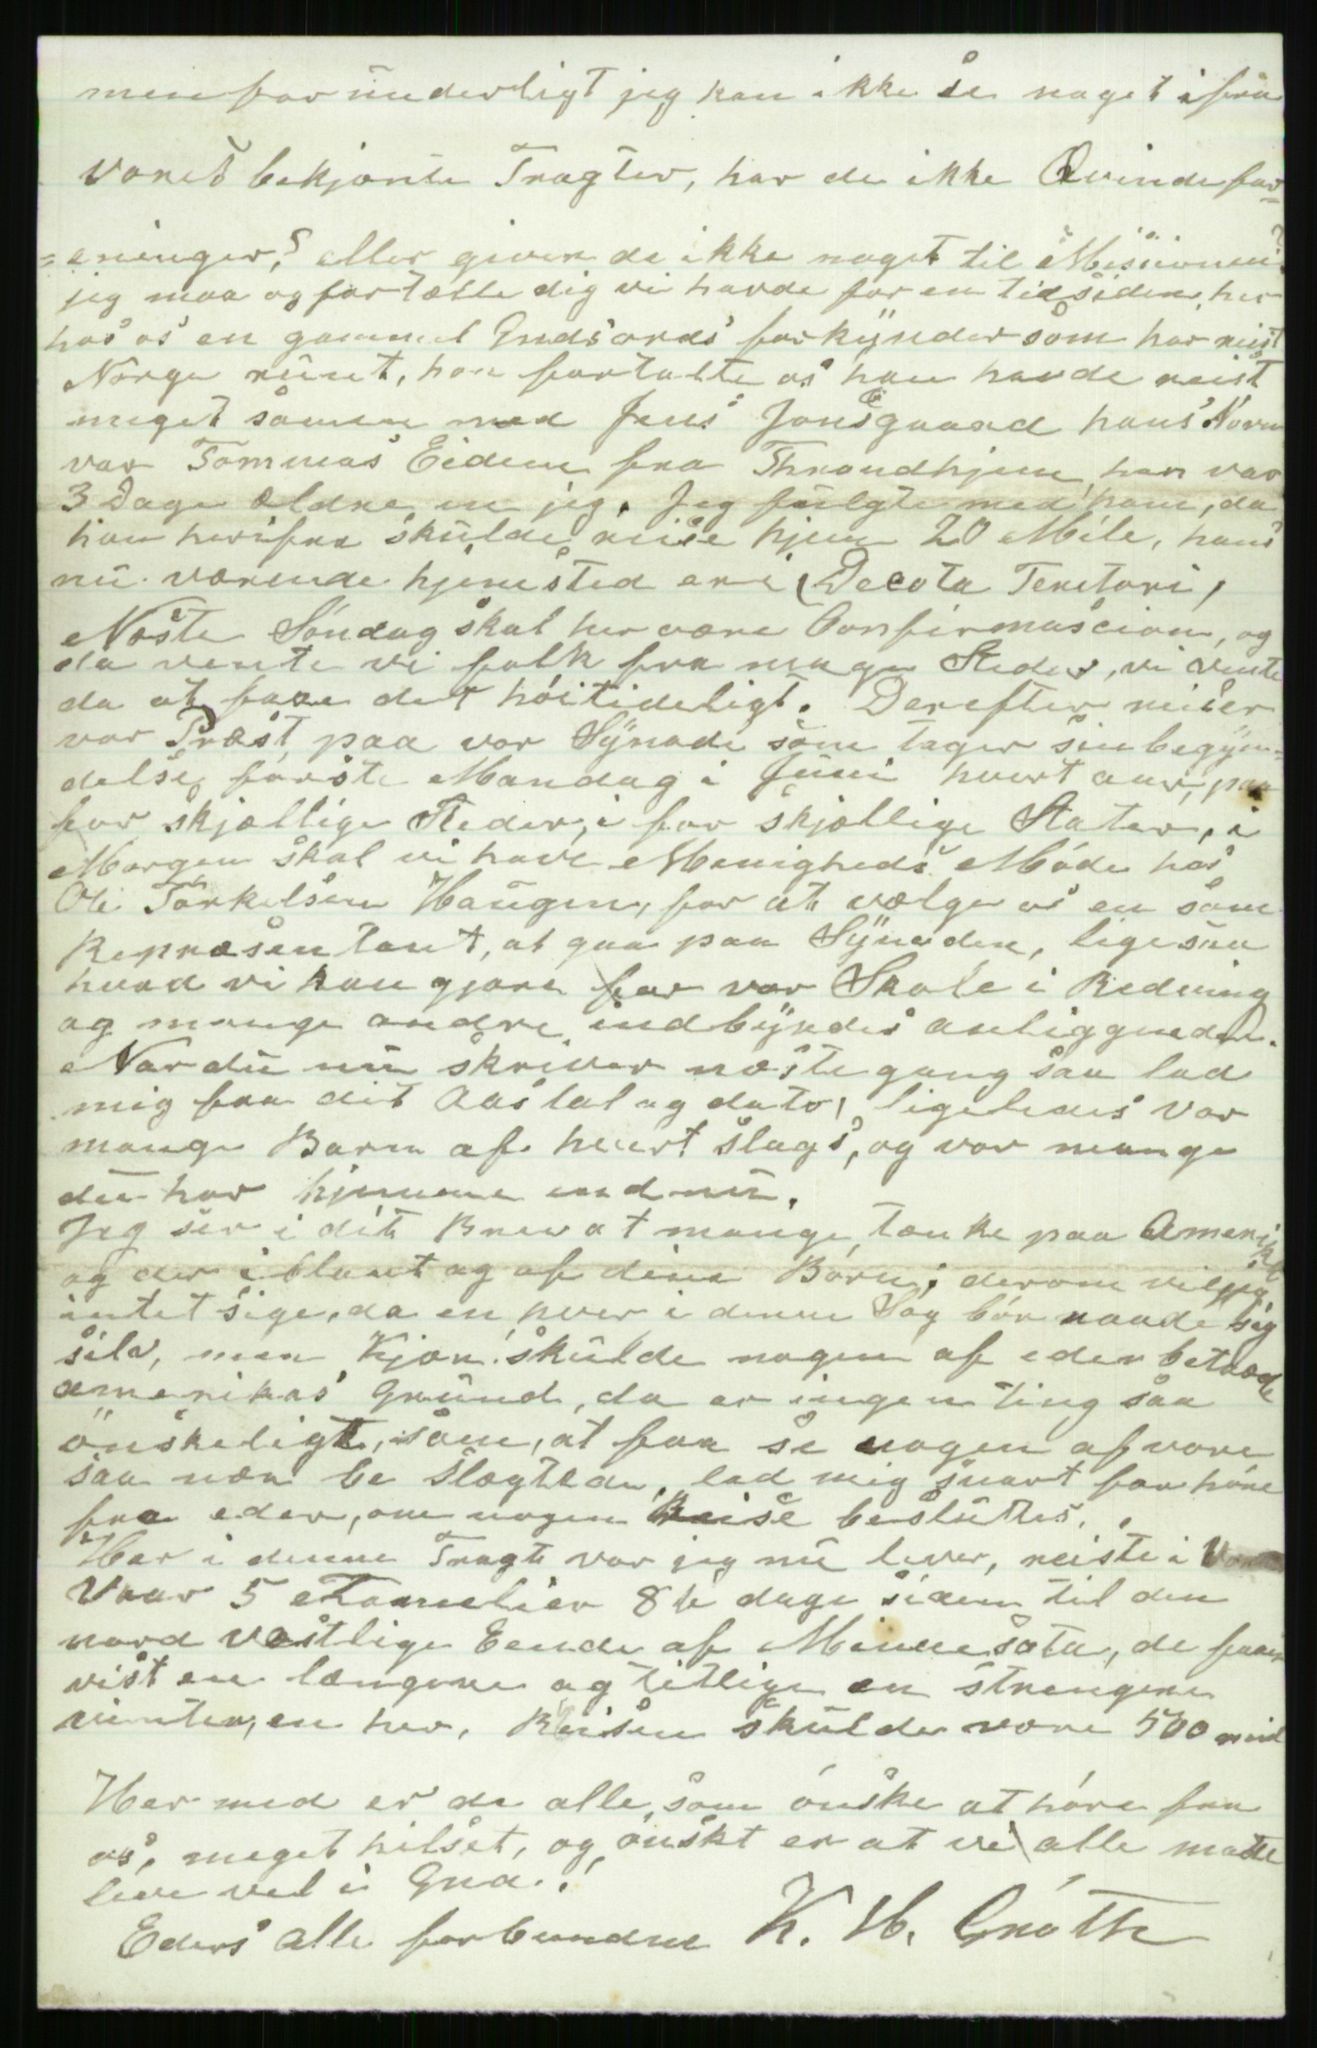 men foründerligt jeg kan ikke se noget ifra
voret bekjente Tragter, har de ikke Qvindefor-
=eninger,? eller giver de ikke noget til Missionen?
jeg maa og fortælle dig vi havde for en tid siden her
hos os en gammel Gudsords forkÿnder som har reist
Norge rünt, han fortalte os han havde reist
meget samen med Jens Jonsgaard hans Navn
var Tommas Eidem fra Throndhjem han var
3 Dage ældre en jeg. Jeg fülgte med ham, da
han herifra skülde reise hjem 20 Mile, hans
nü værende hjemsted er i (Decota Teretori,
Næste Söndag skal her være Confirmascion, og
da vente vi folk fra mage Steder, vi vente
da at faae det höitideligt. Derefter reiser
vor Præst paa vor Sÿnode som tager sin begÿn=
delse förste Mandag i Jüni hvert aar, paa
for skjællige Steder, i for skjællige Stater, i
Morgen skal vi have Menigheds Möde hos
Ole Torkelsen Haugen, for at vælge os en som
Repræsentant, at gaa paa Sÿnoden, ligesaa
hvad vi kan gjøre for vor Skole i Redwing
og mange andre indbÿrdes anliggender.
Nar dü nü skriver næste gang saa lad
mig faa dit Aastal og dato, ligeledes vor
mange Barn af hvert slags, og vor mange
dü har hjemme end nü.
Jeg ser i dit Brev at mange tænke paa Amerika
og der i blant og af dine Börn, derom vil jeg
intet sige, da en hver i denne Sag bör raade sig
selv, men Kjære skülde nogen af eder betræde
amerikas Gründ, da er ingen ting saa
önskeligt, som, at faa se nogen af vore
saa nær be slægtede, lad mig snart faa höre
fra eder, om nogen Reise beslüttes.
Her i denne Tragt vor jeg nü lever, reiste i
Vaar 5 Familier 8te dage siden til den
nord vestlige Eende af Minnesota, de faaer
vist en længere og titlige en strengere
vinter, en her, Reisen skülde være 500 mil
Her med er da alle, som önske at höre fra
os, meget hilset, og önskt er at vi alle matte
leve vel i Gud.!
Eders alle forbundne K. H. Gróth